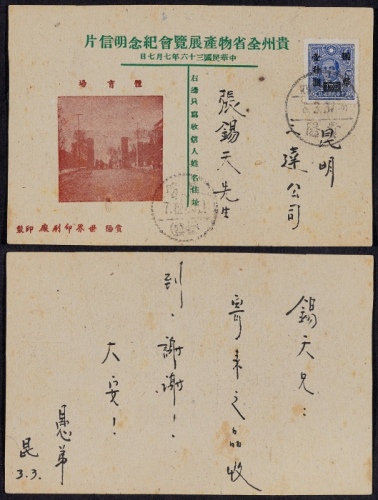 貴州全省物產展覽會紀念明信片
中華民國三十六年七月七日
體育場
右邊只寫收信人姓名住址
貴陽 世界印刷廠 印製
昆明
達公司
張錫天先生
錫天兄：
寄來之品收
到，謝謝！
大安！
愚弟
昆
3.3.